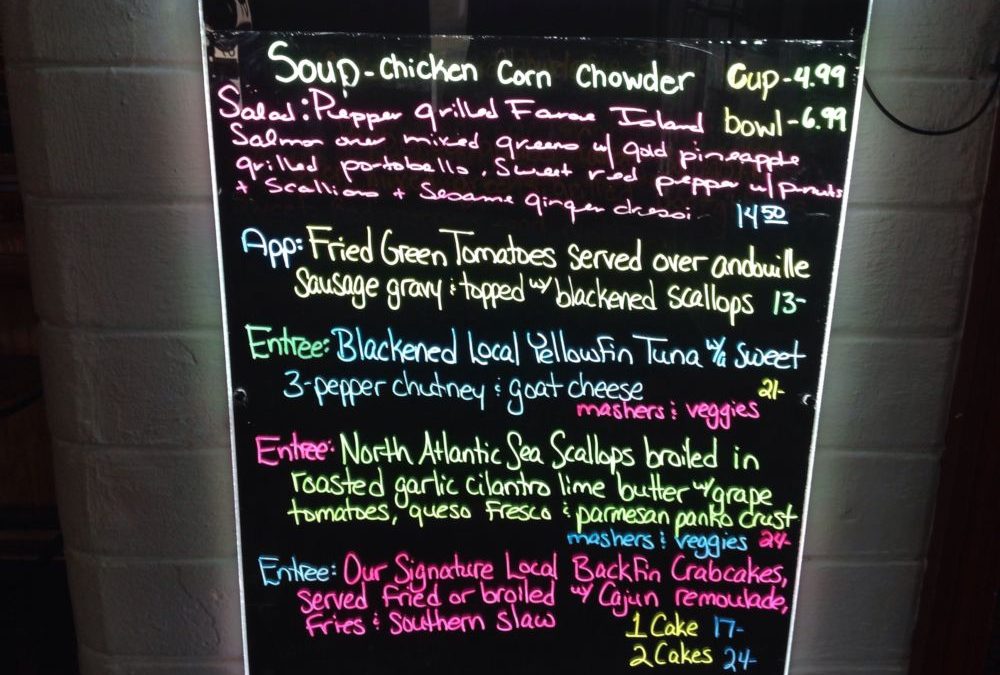 Soup - Chicken Corn Chowder Cup - 4.99
Salad: Pepper grilled Faroe Island bowl - 6.99
Salmon over mixed greens w/ gold pineapple
grilled portobello, Sweet red pepper w/ pnuts
+ Scallions + Sesame ginger dressi 14 50
App: Fried Green Tomatoes served over andouille
sausage gravy & topped w/ blackened scallops 13-
Entree: Blackened Local Yellowfin Tuna w/a sweet
3-pepper chutney & goat cheese 21-
mashers & veggies
Entree: North Atlantic Sea Scallops broiled in
roasted garlic cilantro lime butter w/ grape
tomatoes, queso fresco & parmesan panko crust
mashers & veggies 24-
Entree: Our Signature Local Backfin Crabcakes,
served fried or broiled w/ Cajun remoulade,
Fries & Southern Slaw
1 Cake 17-
2 Cakes 24-